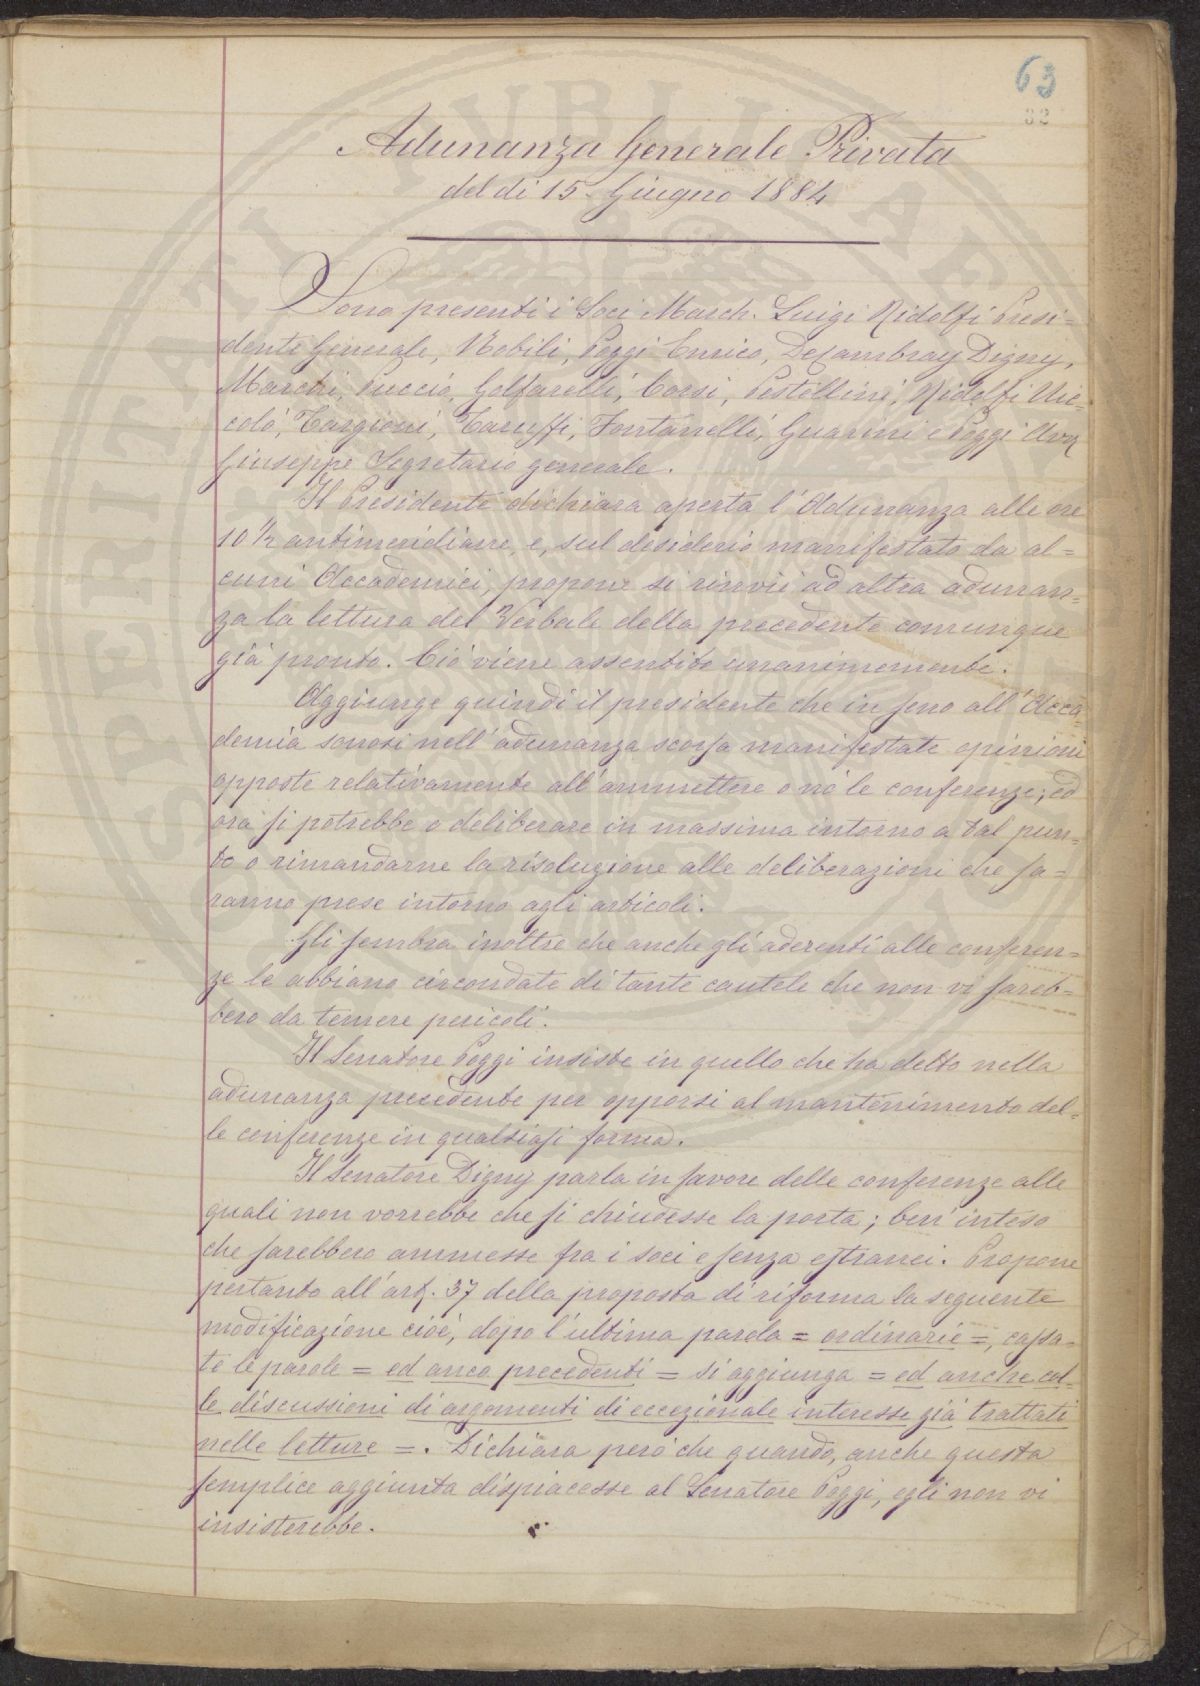 63
32
Adunanza Generale Privata
del dì 15 Giugno 1884
Sono presenti i Soci March. Luigi Ridolfi Presi=
dente Generale, Nobili, Poggi Enrico, DeCambray Digny,
Marchi, Puccio, Golfarelli, Corsi, Pestellini, Ridolfi Nic=
colò, Targioni, Taruffi, Fontanelli, Guarini e Poggi Avv.
Giuseppe Segretario generale.
Il Presidente dichiara aperta l'Adunanza alle ore
10 ½ antimeridiane, e, sul desiderio manifestato da al=
cuni Accademici, propone si rinvii ad altra adunan=
za la lettura del Verbale della precedente comunque
già pronto. Ciò viene assentito unanimemente.
Aggiunge quindi il presidente che in seno all'Acca=
demia sonosi nell'adunanza scorsa manifestate opinioni
opposte relativamente all'ammettere o nò le conferenze; ed
ora si potrebbe o deliberare in massima intorno a tal pun=
to o rimandarne la risoluzione alle deliberazioni che sa=
ranno prese intorno agli articoli.
Gli sembra inoltre che anche gli aderenti alle conferen=
ze le abbiano circondate di tante cautele che non vi sareb=
bero da temere pericoli.
Il Senatore Poggi insiste in quello che ha detto nella
adunanza precedente per opporsi al mantenimento del=
le conferenze in qualsiasi forma.
Il Senatore Digny parla in favore delle conferenze alle
quali non vorrebbe che si chiudesse la porta; ben inteso
che sarebbero ammesse fra i soci e senza estranei. Propone
pertanto all'art. 37 della proposta di riforma la seguente
modificazione cioè, dopo l'ultima parola = ordinarie =, cassa=
te le parole = ed anco precedenti = si aggiunga = ed anche col=
le discussioni di argomenti di eccezionale interesse già trattati
nelle letture =. Dichiara però che quando, anche questa
semplice aggiunta dispiacesse al Senatore Poggi, egli non vi
insisterebbe.